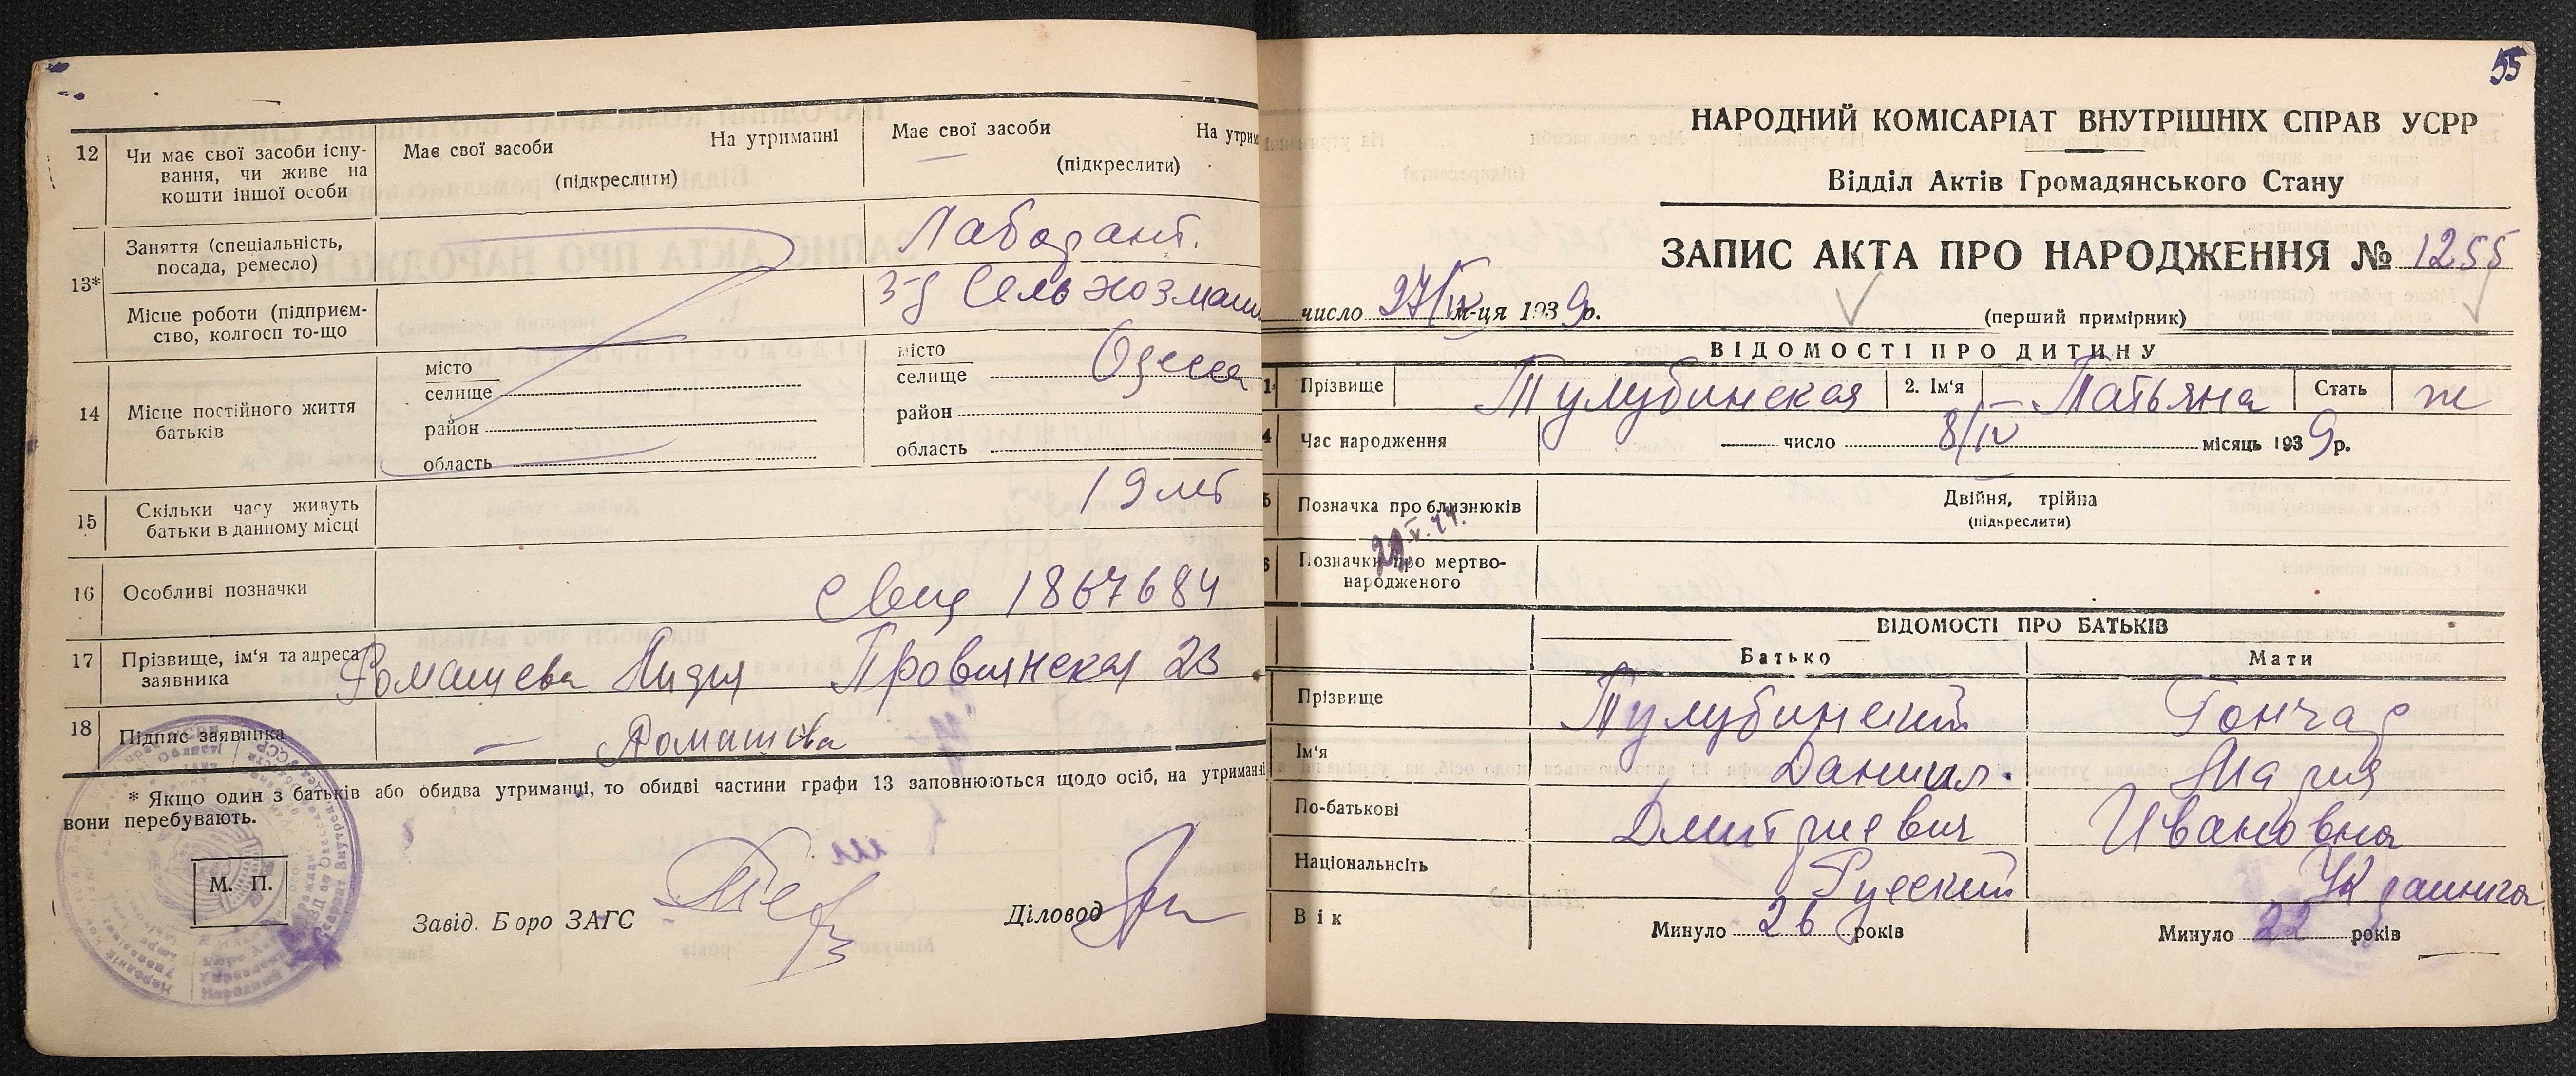 12
Чи має свої засоби існу-
вання, чи живе на
кошти іншої особи
Має свої засоби На утриманні
(підкреслити)
Має свої засоби На утрим
(підкреслити)
13*
Заняття (спеціальність,
посада, ремесло)
Лаборант.
Місце роботи (підприєм-
ство, колгосп то-що
з-д Сельхозмаш
14
Місце постійного життя
батьків
місто
селище
район
область
місто
селище Одесса
район
область
15
Скільки часу живуть
батьки в данному місці
19 лет
16
Особливі позначки
Свид 1867684
17
Прізвище, ім'я та адреса
заявника
Ромашева Лидия Провиянская 23
18
Підпис заявника
Ромашева
* Якщо один з батьків або обидва утриманці, то обидві частини графи 13 заповнюються щодо осіб, на утриманні
вони перебувають.
М. П.
Завід. Боро ЗАГС
Діловод
55
НАРОДНИЙ КОМІСАРІАТ ВНУТРІШНІХ СПРАВ УСРР
Відділ Актів Громадянського Стану
ЗАПИС АКТА ПРО НАРОДЖЕННЯ № 1255
число 27/IV м-ця 1939р.
(перший примірник)
ВІДОМОСТІ ПРО ДИТИНУ
1. Прізвище Тулубинская 2. Ім'я Татьяна Стать ж
4 Час народження число 8/IV місяць 1939р.
5 Позначка про близнюків Двійня, трійпа
(підкреслити)
29.V.44.
6 Позначки про мертво-
народженого
ВІДОМОСТІ ПРО БАТЬКІВ
Батько Мати
Прізвище Тулубинский Гончар
Ім'я Даниил. Мария
По-батькові Дмитриевич Ивановна
Національнсіть Русский Украинка
Вік Минуло 26 років Минуло 22 років